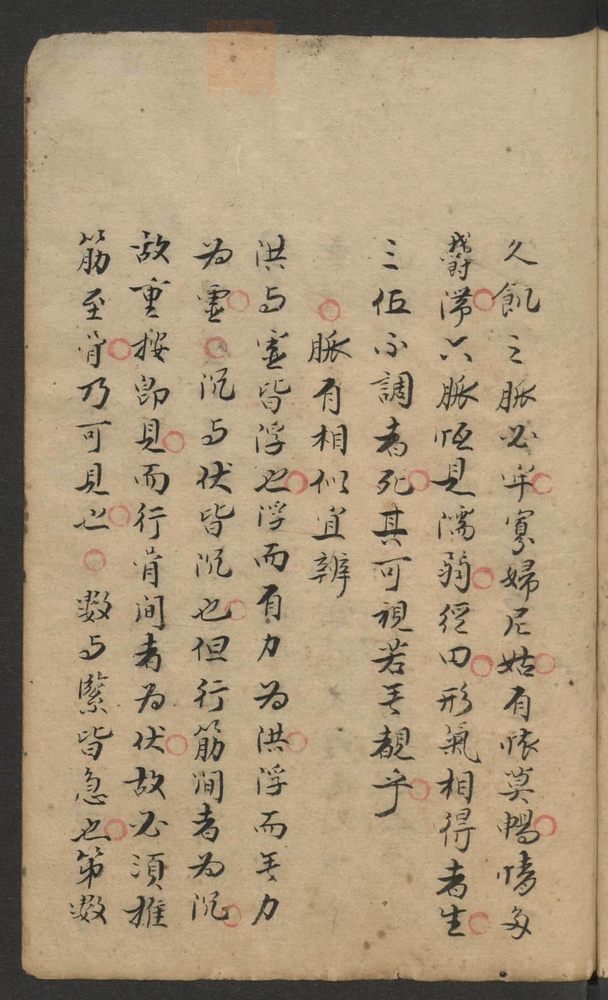 久飢之脈必牢寡婦尼姑有懷莫暢情多
鬱滯六脈恆見濡弱經曰形氣相得者生
三伍不調者死其可視若無覩乎
脈有相似宜辨
洪与虛皆浮也浮而有力為洪浮而無力
為虛沉与伏皆沉也但行筋间者為沉
故重按即見而行骨间者為伏故必須推
筋至骨乃可見也数与緊皆急也第数